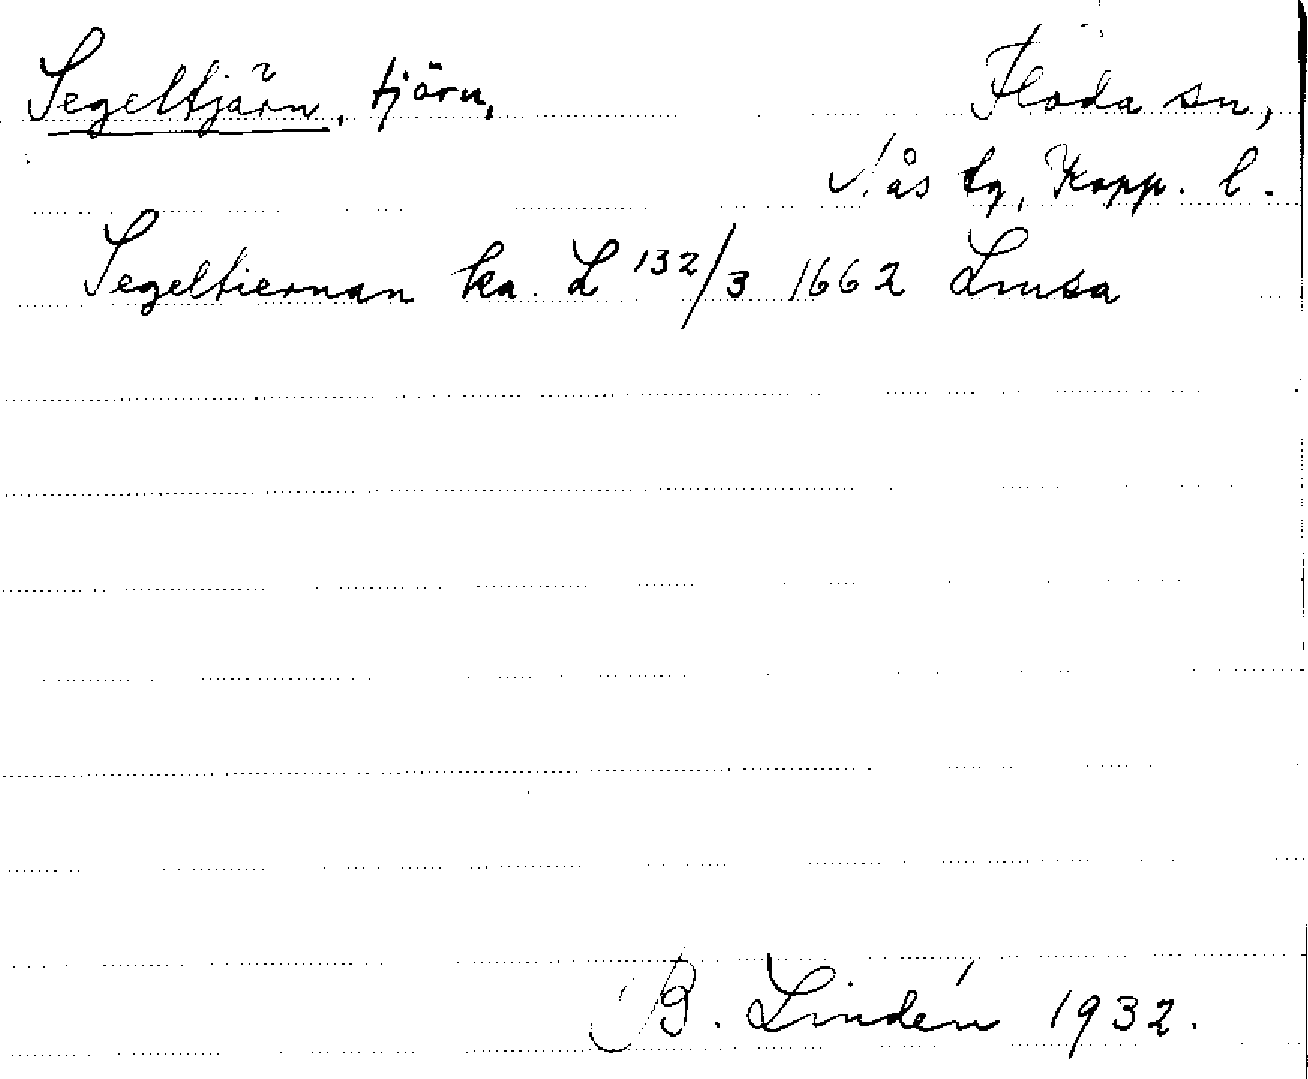 Segeltjärn, tjärn, Floda sn,
Nås tg, Kopp. l.
Segeltiernan ka. L 132/3 1662 Lmsa
B. Lindén 1932.